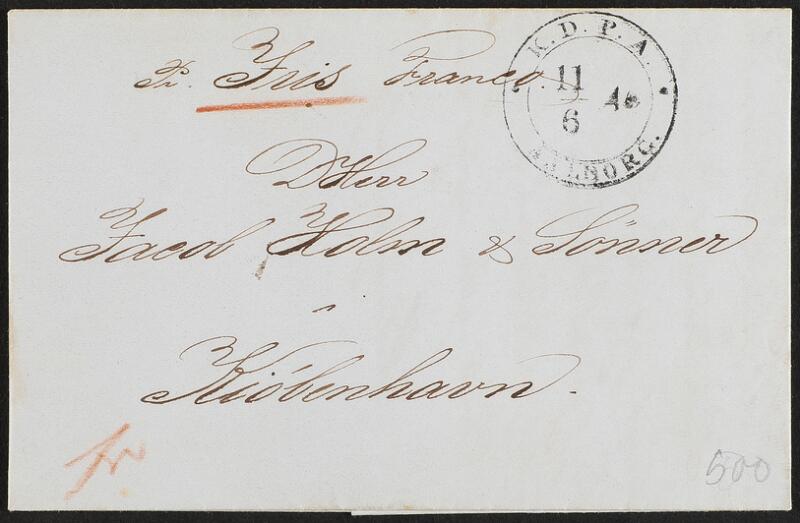 Pr. Iris Franco.
K. D. P. A.
11
6
AALBORG.
DHerr
Jacob Holm & Sönner
i
Kiöbenhavn.
fr
500